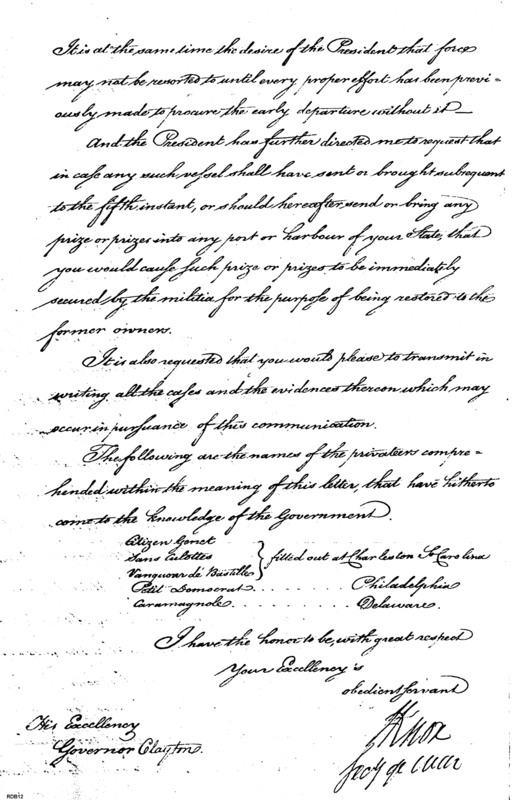 It is at the same time the desire of the President that force
may not be resorted to until every proper effort has been previ=
ously made to procure the early departure without it—
And the President has further directed me to request that
in case any such vessel shall have sent or brought subsequent
to the fifth instant, or should hereafter send or bring any
prize or prizes into any port or harbour of your State, that
you would cause such prize or prizes to be immediately
secured by the militia for the purpose of being restored to the
former owners.
It is also requested that you would please to transmit in
writing all the cases and the evidences thereon which may
occur in pursuance of this communication.
The following are the names of the privateers compre=
hended within the meaning of this letter, that have hitherto
come to the knowledge of the Government.
Citizen Genet
Sans Culottes } fitted out at Charleston So Carolina
Vanqueur de Bastille
Petit Democrat . . . . . . . . . . Philadelphia
Caramagnole . . . . . . . . . . . Delaware.
I have the honor to be, with great respect
Your Excellency's
obedient servant
HKnox
Secy of War
His Excellency
Governor Clayton
RDB12